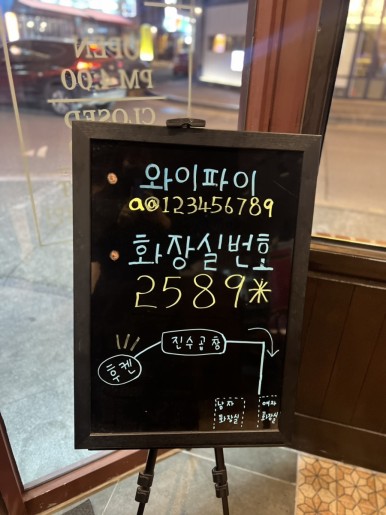 OPEN
PM 4:00
CLOSED
와이파이
a@123456789
화장실번호
2589*
진수곱창
후켄
남자
화장실
여자
화장실